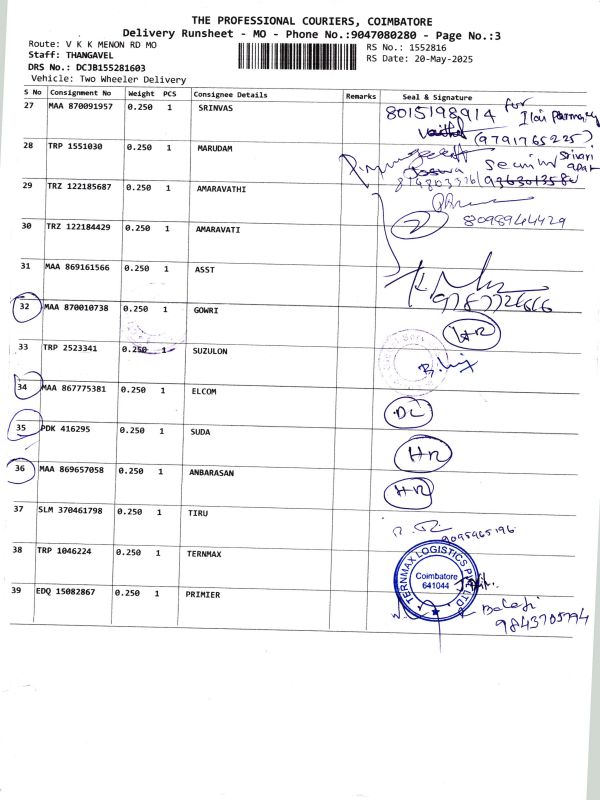 THE PROFESSIONAL COURIERS, COIMBATORE
Delivery Runsheet - MO - Phone No.:9047080280 - Page No.:3
Route: V K K MENON RD MO
RS No.: 1552816
Staff: THANGAVEL
RS Date: 20-May-2025
DRS No.: DCJB155281603
Vehicle: Two Wheeler Delivery
S No Consignment No Weight PCS Consignee Details Remarks Seal & Signature
27 MAA 870091957 0.250 1 SRINVAS 8015198914 for
(9791765225)
28 TRP 1551030 0.250 1 MARUDAM
29 TRZ 122185687 0.250 1 AMARAVATHI
30 TRZ 122184429 0.250 1 AMARAVATI 8098944429
31 MAA 869161566 0.250 1 ASST
32 MAA 870010738 0.250 1 GOWRI HR
33 TRP 2523341 0.250 1 SUZULON
34 MAA 867775381 0.250 1 ELCOM DL
35 PDK 416295 0.250 1 SUDA HR
36 MAA 869657058 0.250 1 ANBARASAN HR
37 SLM 370461798 0.250 1 TIRU 9095965196
38 TRP 1046224 0.250 1 TERNMAX
TERNMAX LOGISTICS PVT LTD
Coimbatore
641044
39 EDQ 15082867 0.250 1 PRIMIER Balaji
9843705794